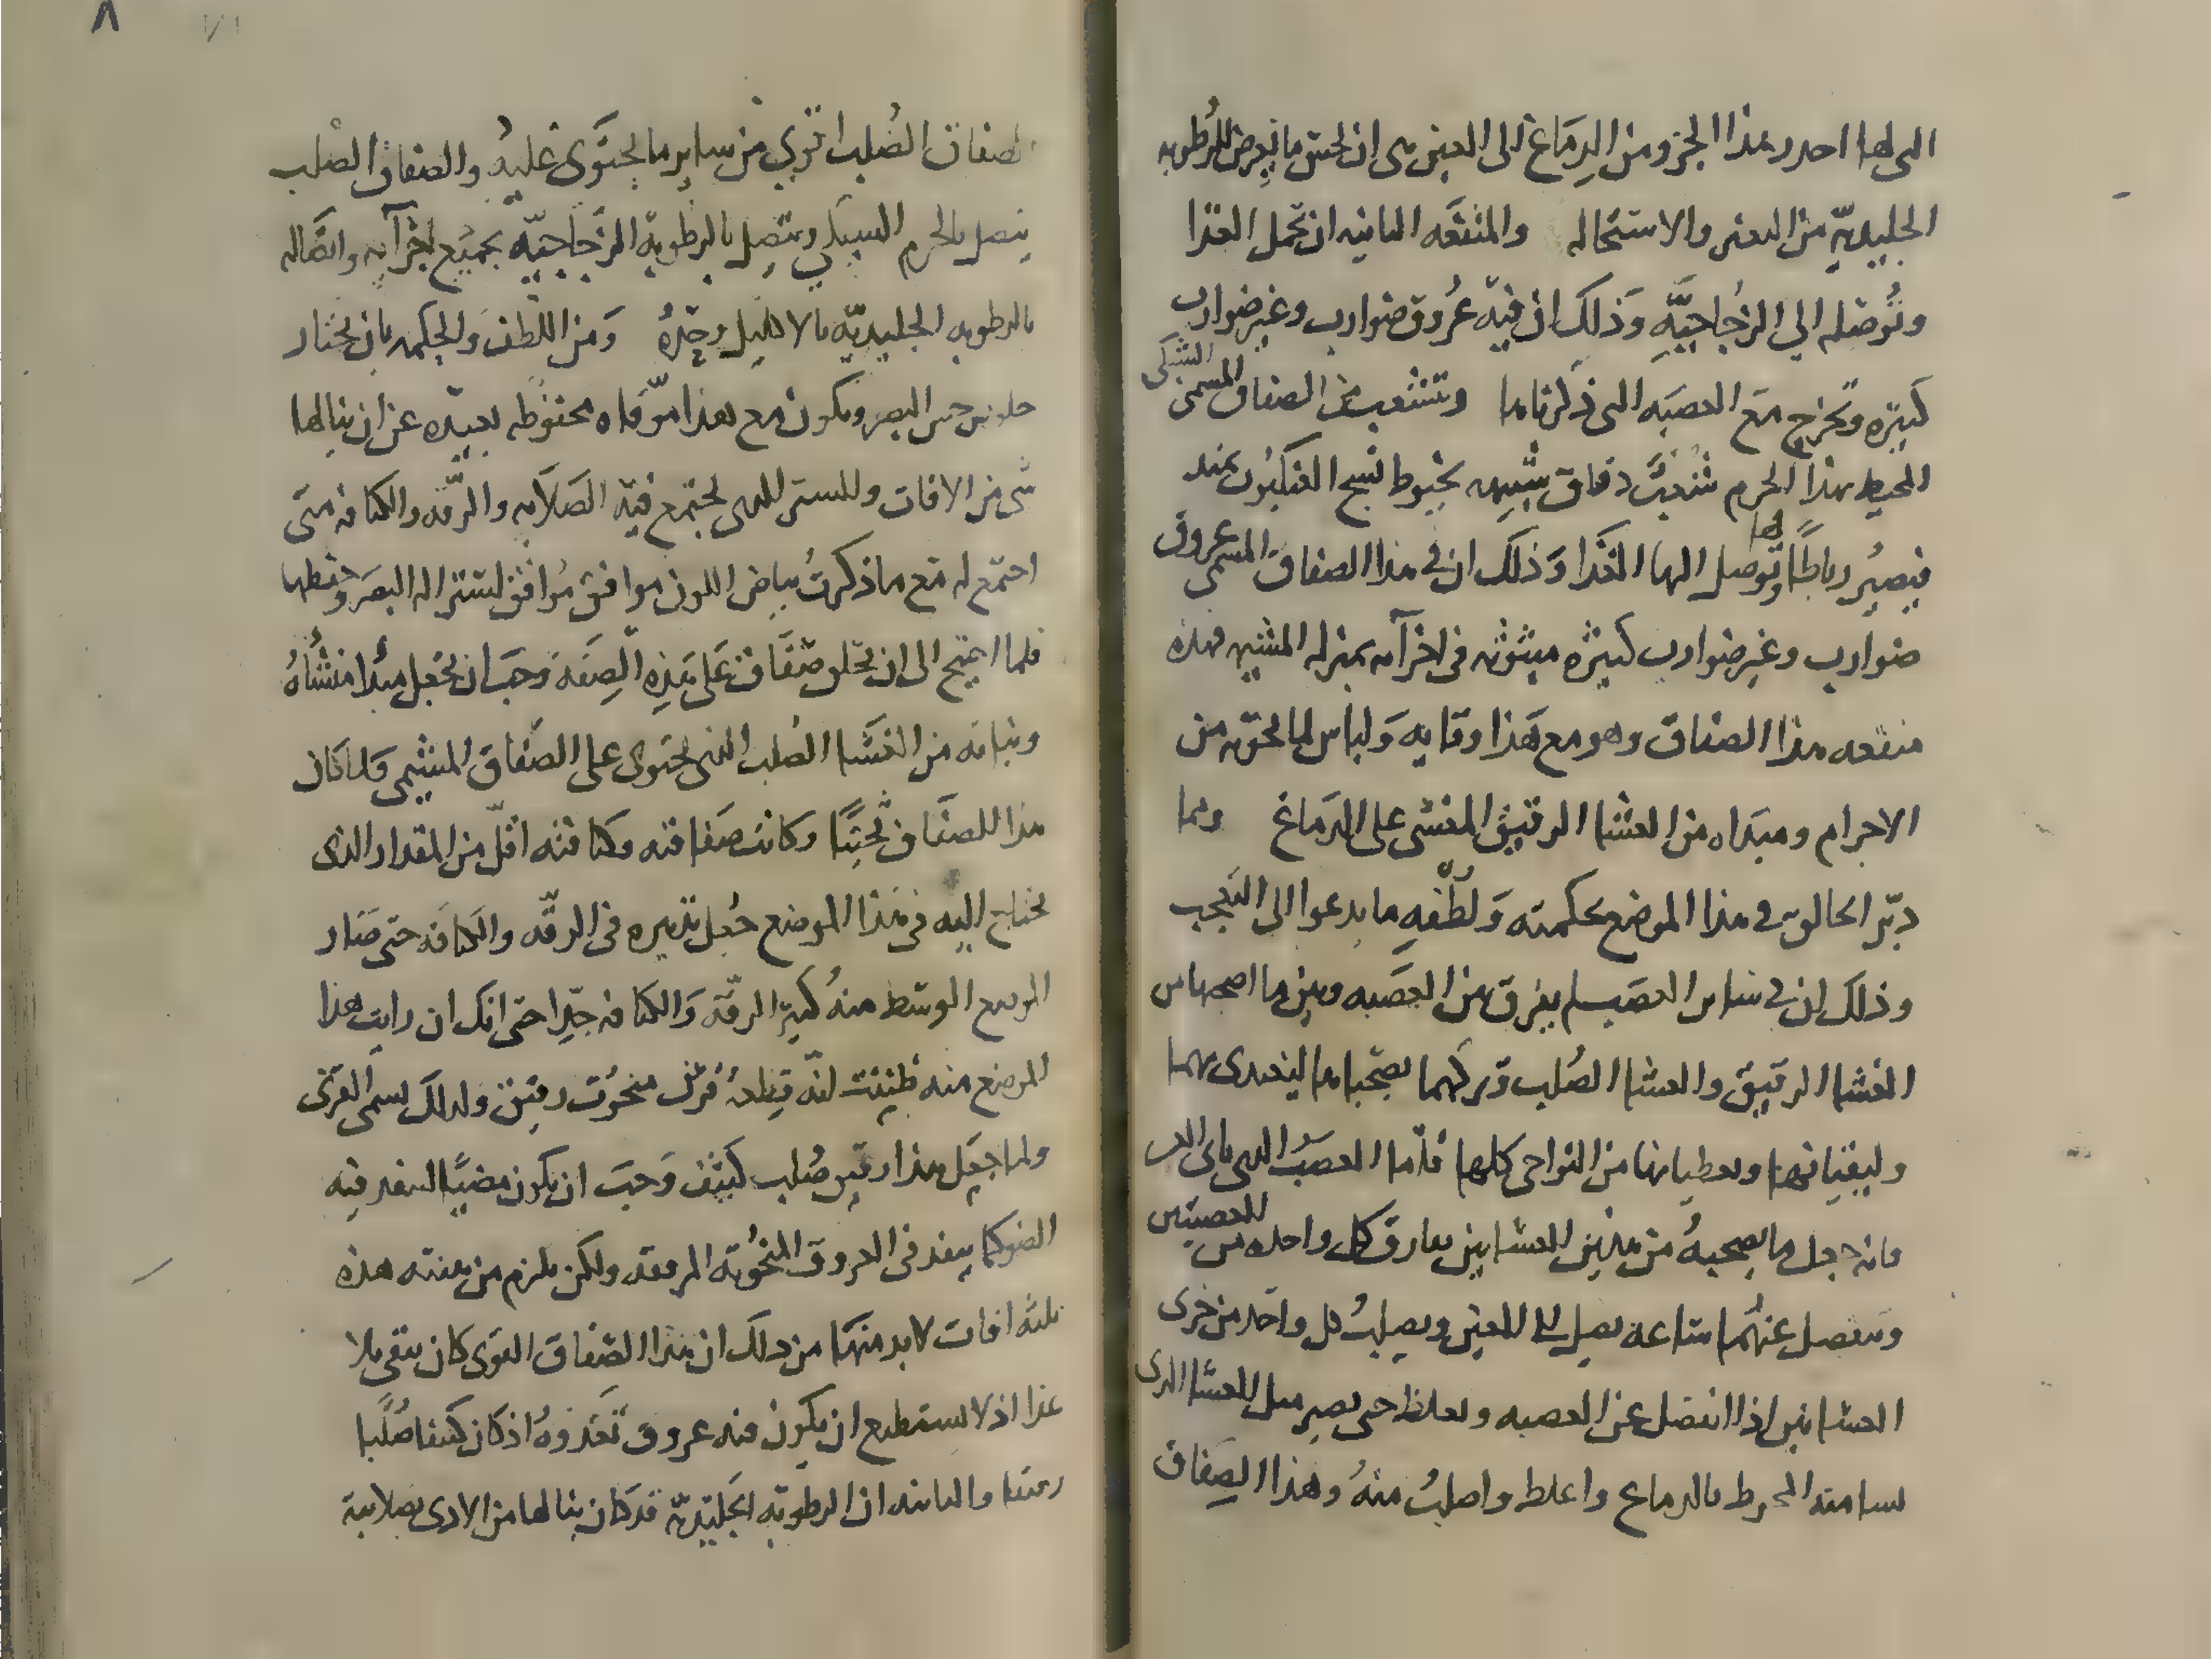 التي لها احدر هذا الجزو من الدِمَاغ الى العين هى ان تحس ما يَعرض للرُطوبه
الجليديّه من التغير والاستحاله والمنفعَه الثانيه ان تحمل الغذا
وتُوصله الي الزُجاجيَّهِ وَذلكَ ان فيَه عُروق ضوارب وغير ضوارب
كثيَره وتخرج مَع العصبَه التى ذكرناها وتتشعب من الصفاق المسمى الشبكى
المحيط بهذا الجرم شُعبٌ دقاق شبيهه بخيوط نسج العنكبُوت عند
فيصيُر رباطًا لها وتوصل اليها الغَذا وَذلك ان فى هذا الصفاق المسمى عروق
ضوارب وغير ضوارب كثيرَه مبثوثه فى اجزآءه بمنزله المشيمه فهذه
منفعه هذا الصفاق وهو مع هَذا وقايه وَلباس لما يحويه من
الاجرام ومبَداه من الغشا الرقيق المغشى على الدَماغ ومما
دبّر الخالق فى هذا الموضع بحكمته وَلُطْفهِ ما يدعوا الى التعَجب
وذلك ان فى ساير العصَب لم يفرق بين العصَبه وبين ما اصحبها من
الغشا الرقيق والغشا الصُلب وتركهما بصحبتها ليغتدى بهما
وليقيانها ويغطيانها من النواحى كلها فامّا العصَبُ التى تاتى العين
فانه جعل ما يصحبهُ من هذين الغشايين يفارق كل واحده من العصبتين
وينفصل عنهُما ساعه يصل الى العين ويصلبُ كل واحَد من جزى
الغشايين اذا انفصل عن العصبه ويغلظ حتى يصير مثل الغشا الذى
لسا منه المحيط بالدماغ واغلظ واصلبُ منهُ وهذا الصِفاق
الصفاق الصُلب اقوي من ساير ما يحتَوى عليهُ والصفاق الصْلب
يتصل بالجرم الشبكي ويتصل بالرطوبة الزُجَاجيّه بجميع اجزآيه واتصَاله
بالرطوبه الجليديّه بالاكليل وحَدهُ وَمن اللَطف وَالحكمه بان يختار
جلوس حس البصر ويكون مع هذا موّقاه محفوظه بعيدَه عن ان ينالها
شى من الافات وللستر الذى يجتمع فيَه الصَلابه والرقّه والكثافه متى
اجتمع له مَع ما ذكرتُ بياض اللون موافق مُرافق لستر اله البصَر وحفظها
فلما احتيج الى ان يخَلق صَفاق عَلى هَذِه الصِفَه وَجبَ ان يجعل مبدا منشأهُ
ونباته من الغشَا الصُلب الذى يحتوى على الصَفاق المشيمى وَلما كَان
هذا للصفَاق تحتًا وكانت صَفاقته وكثافته اقلّ من المقدار الذى
يحتاج اليه فى هَذا الموضع جُعل تدبيره فى الرقّه والكثافَه حتى صَار
الموضع الوسَط منهُ كثير الرقّه وَالكثافه جدّا حتى انك ان رايت هذا
الموضع منه ظنِنت انّه قِطعهُ قرن منحُوت رقيق ولذلك يسمى القرنى
ولما جعَل هذا رقيق صُلب كثيف وَجبَ ان يكون مضيًا لينفذ فيه
الضو كما ينفذ فى العروق المنحُوته المرققه ولكن يلزم من بعثته هذه
ثلثه افات لا بد منهَا من ذلك ان هذا الصِفاق القوى كان يبقى بلا
غذا اذ لا يستطيع ان يكون فيه عروق تَغذوهُ اذ كان كثيفا صُلبا
رقيقا والثانيه ان الرطوبَه الجَليَديّه قد كان ينالها من الاذى بصلابَة